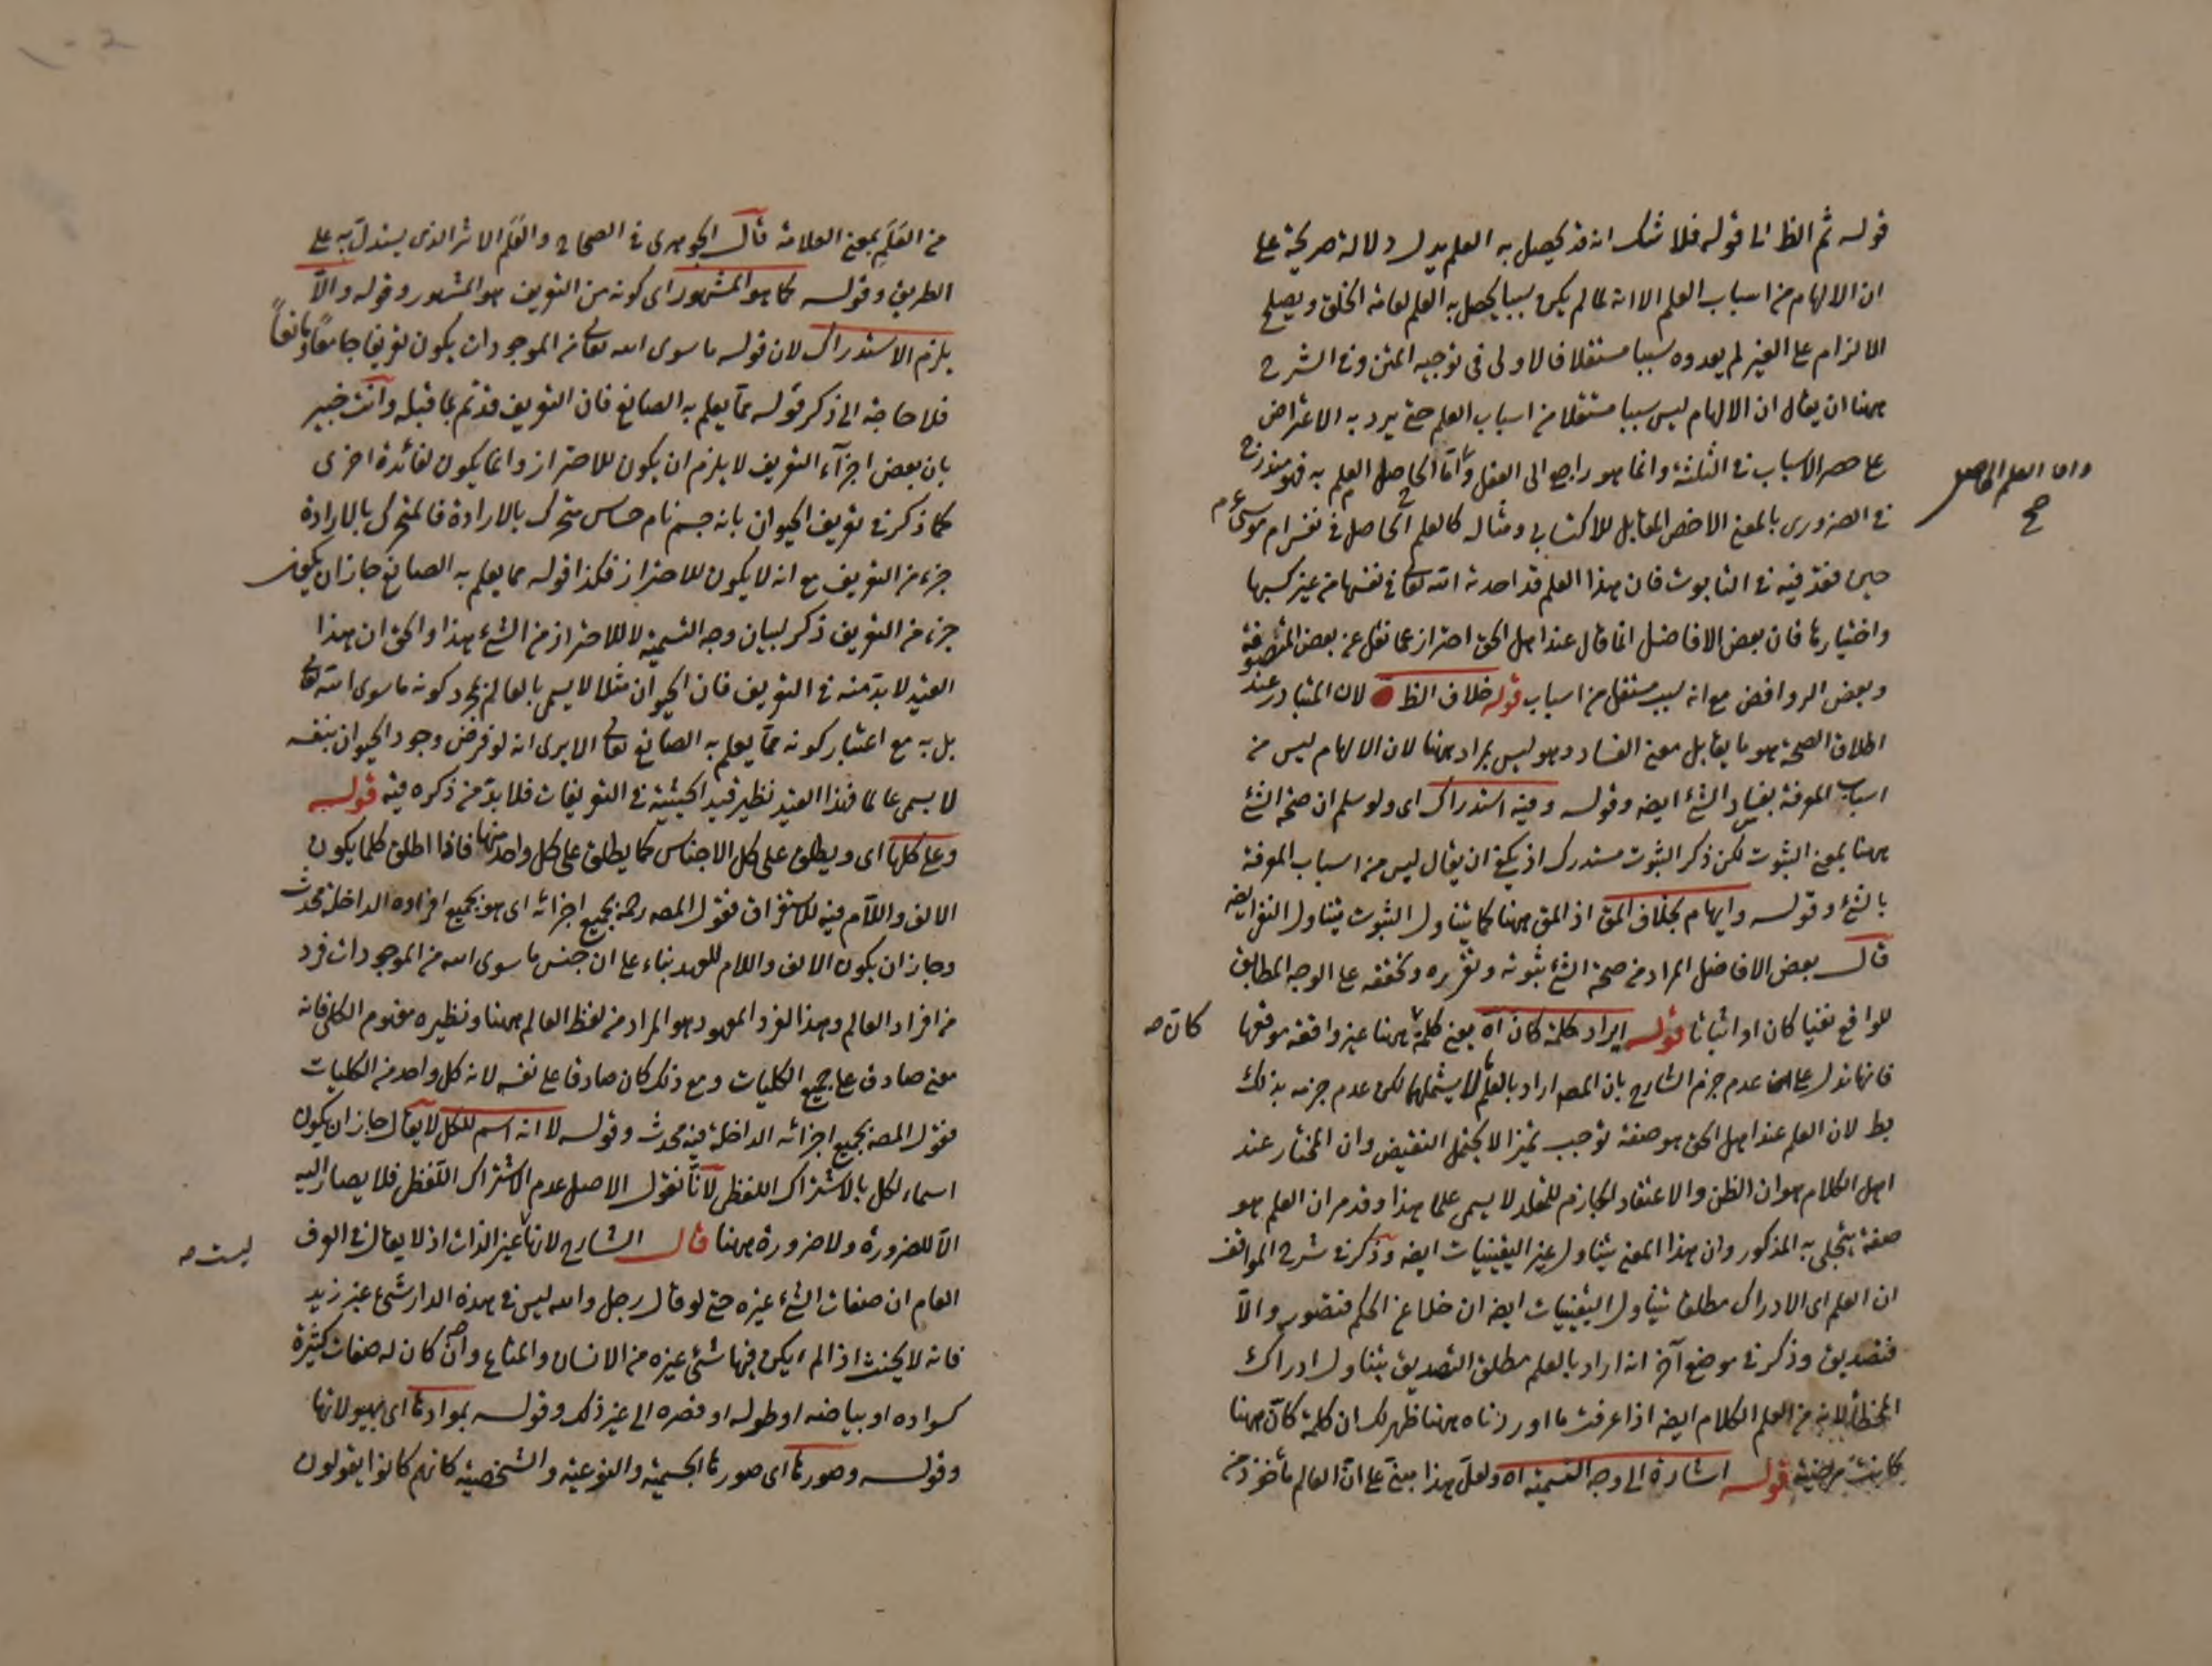 قوله ثم الظ الى قوله فلا شك انه قد يحصل به العلم يدل دلالة صريحة على
ان الالهام من اسباب العلم الا انه لما لم يكن سببا يحصل به العلم لعامة الخلق ويصلح
للالزام على الغير لم يعدوه سببا مستقلا فالاولى في توجيه المتن وفي الشرح
ههنا ان يقال ان الالهام ليس سببا مستقلا من اسباب العلم حتى يرد به الاعتراض
على حصر الاسباب في الثلثة وانما هو راجع الى العقل واما الحاصل العلم به فهو مندرج
واما العلم الحاصل صح
في الضرورى بالمعنى الاخص المقابل للاكتسابي ومثاله كالعلم الحاصل في نفس ام موسى عم
حين قذفته في التابوت فان هذا العلم قد احدثه الله تعالى في نفسها من غير كسبها
واختيارها فان بعض الافاضل انما قال عند اهل الحق احتراز عما نقل عن بعض المتصوفة
وبعض الروافض مع انه سبب مستقل من اسباب قوله خلاف الظ لان المتبادر عند
اطلاق الصحة هو ما يقابل معنى الفساد وهو ليس بمراد ههنا لان الالهام ليس من
اسباب المعرفة بفساد الشئ ايضه وقوله وفيه استدراك اى ولو سلم ان صحة الشئ
ههنا بمعنى الثبوت لكن ذكر الثبوت مستدرك اذ يكفي ان يقال ليس من اسباب المعرفة
بالشئ وقوله وايهام بخلاف المق اذ المق ههنا كما يتناول الثبوت يتناول النفي ايضه
قال بعض الافاضل المراد من صحة الشئ ثبوته وتقرره وتحققه على الوجه المطابق
للواقع نفيا كان او اثباتا قوله ايراد كلمة كان اه يعنى كلمة ههنا غير واقعة موقعها
كان صه
فانها تدل على عدم جزم الشارح بان المصه اراد بالعلم لا يشملهما لكن عدم جزمه بذلك
بط لان العلم عند اهل الحق هو صفة توجب تميزا لا يحتمل النقيض وان المختار عند
اهل الكلام هو ان الظن والاعتقاد الجازم للمقلد لا يسمى علما هذا وقد مر ان العلم هو
صفة يتجلى به المذكور وان هذا المعنى يتناول غير اليقينيات ايضه وذكر في شرح المواقف
ان العلم اى الادراك مطلقا يتناول اليقينيات ايضه ان خلا عن الحكم فتصور والا
فتصديق وذكر في موضع آخر انه اراد بالعلم مطلق التصديق يتناول ادراك
المخطئ من العلم الكلام ايضه اذا عرفت ما اوردناه ههنا ظهر لك ان كلمة كان ههنا
كانت مرضية قوله اشارة الى وجه التسمية اه ولعل هذا مبنى على ان العالم مأخوذ من
من العَلَم بمعنى العلامة قال الجوهرى في الصحاح والعَلَم الاثر الذى يستدل به على
الطريق وقوله كما هو المشهور اى كونه من التعريف هو المشهور وقوله والا
يلزم الاستدراك لان قوله ما سوى الله تعالى من الموجودات يكون تعريفا جامعًا ومانعًا
فلا حاجة الى ذكر قوله مما يعلم به الصانع فان التعريف قد تم بما قبله وانت خبير
بان بعض اجزآء التعريف لا يلزم ان يكون للاحتراز وانما يكون لفائدة اخرى
كما ذكر في تعريف الحيوان بانه جسم نام حساس متحرك بالارادة فالمتحرك بالارادة
جزء من التعريف مع انه لا يكون للاحتراز فكذا قوله مما يعلم به الصانع جاز ان يكون
جزء من التعريف ذكر لبيان وجه التسمية لا للاحتراز من الشئ هذا والحق ان هذا
القيد لا بدّ منه في التعريف فان الحيوان مثلا لا يسمى بالعالم بمجرد كونه ما سوى الله تعالى
بل به مع اعتبار كونه مما يعلم به الصانع تعالى الا يرى انه لو فرض وجود الحيوان بنفسه
لا يسمى عالما فهذا القيد نظير قيد الحيثية في التعريفات فلا بدّ من ذكره فيه قوله
وعلى كلها اى ويطلق على كل الاجناس كما يطلق على كل واحد منها فاذا اطلق كلما يكون
الالف واللام فيه للاستغراق فقول المصه رحمه بجميع اجزائه اى هو بجميع افراده الداخلة محدث
وجاز ان يكون الالف واللام للعهد بناء على ان جنس ما سوى الله من الموجودات فرد
من افراد العالم وهذا الفرد المعهود هو المراد من لفظ العالم ههنا ونظيره مفهوم الكلى فانه
معنى صادق على جميع الكليات ومع ذلك كان صادقا على نفسه لانه كل واحد من الكليات
فقول المصه بجميع اجزائه الداخلة فيه محدث وقوله لا انه اسم للكل لا يقال جاز ان يكون
اسما لكل بالاشتراك اللفظى لانا نقول الاصل عدم الاشتراك اللفظى فلا يصار اليه
الا للضرورة ولا ضرورة ههنا قال الشارح لانها غير الذات اذ لا يقال في العرف
ليست صه
العام ان صفات الشئ غيره حتى لو قال رجل والله ليس في هذه الدار شئ غير زيد
فانه لا يحنث اذا لم يكن فيها شئ غيره من الانسان والمتاع وان كان له صفات كثيرة
كسواده او بياضه او طوله او قصره الى غير ذلك وقوله بموادها اى بهيولاتها
وقوله وصورها اى صورها الجسمية والنوعية والشخصية كانهم كانوا يقولون